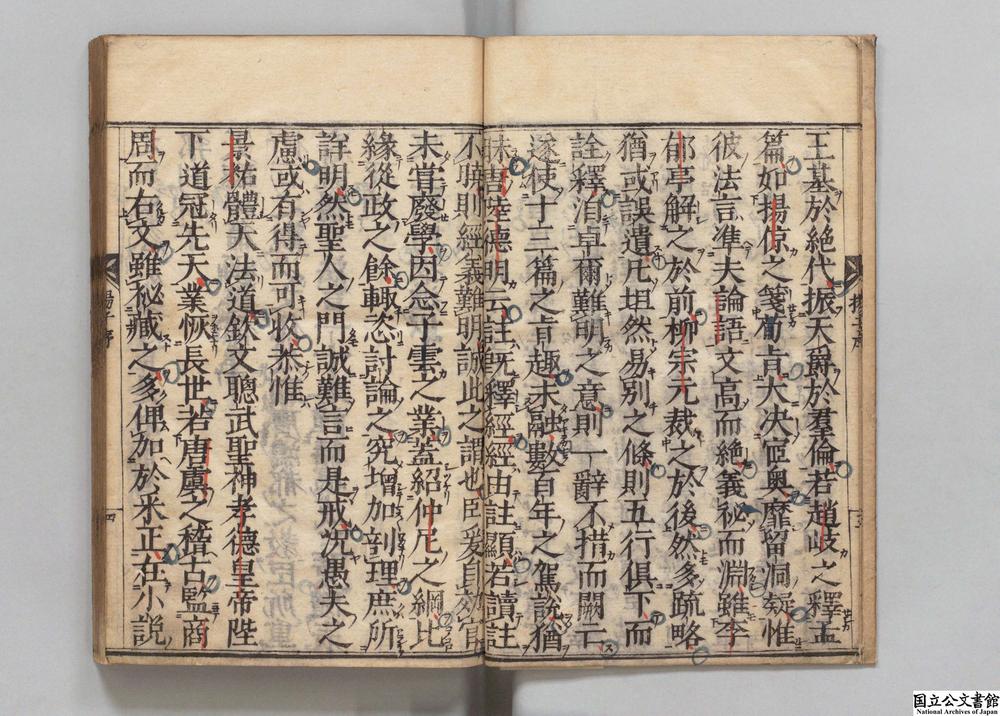 王墓於絶代振天爵於羣倫若趙岐之釋孟
篇如揚倞之箋荀肯大决宧奥靡留洞疑惟
彼法言準夫論語文高而絶義祕而淵雖李
郁亭解之於前柳宗元裁之於後然多疏略
猶或誤遺凡坦然易別之條則五行俱下而
詮釋洎卓爾難明之意則一辭不措而闕云
遂使十三篇之旨趣未融數百年之駕說猶
昧昔陸德明云註旣釋經經由註顯若讀註
不曉則經義難明誠此之謂也臣爰自效官
未甞廢學因念子雲之業蓋紹仲尼之綱比
緣從政之餘輙恣討論之究增加剖理庶所
詳明然聖人之門誠難言而是戒况愚夫之
慮或有得而可收恭惟
景祐體天法道欽文聰武聖神孝德皇帝陛
下道冠先天業恢長世若唐虞之稽古監商
周而右文雖秘藏之多俾加於釆正在小說
揚子序
揚子序
四
国立公文書館
National Archives of Japan